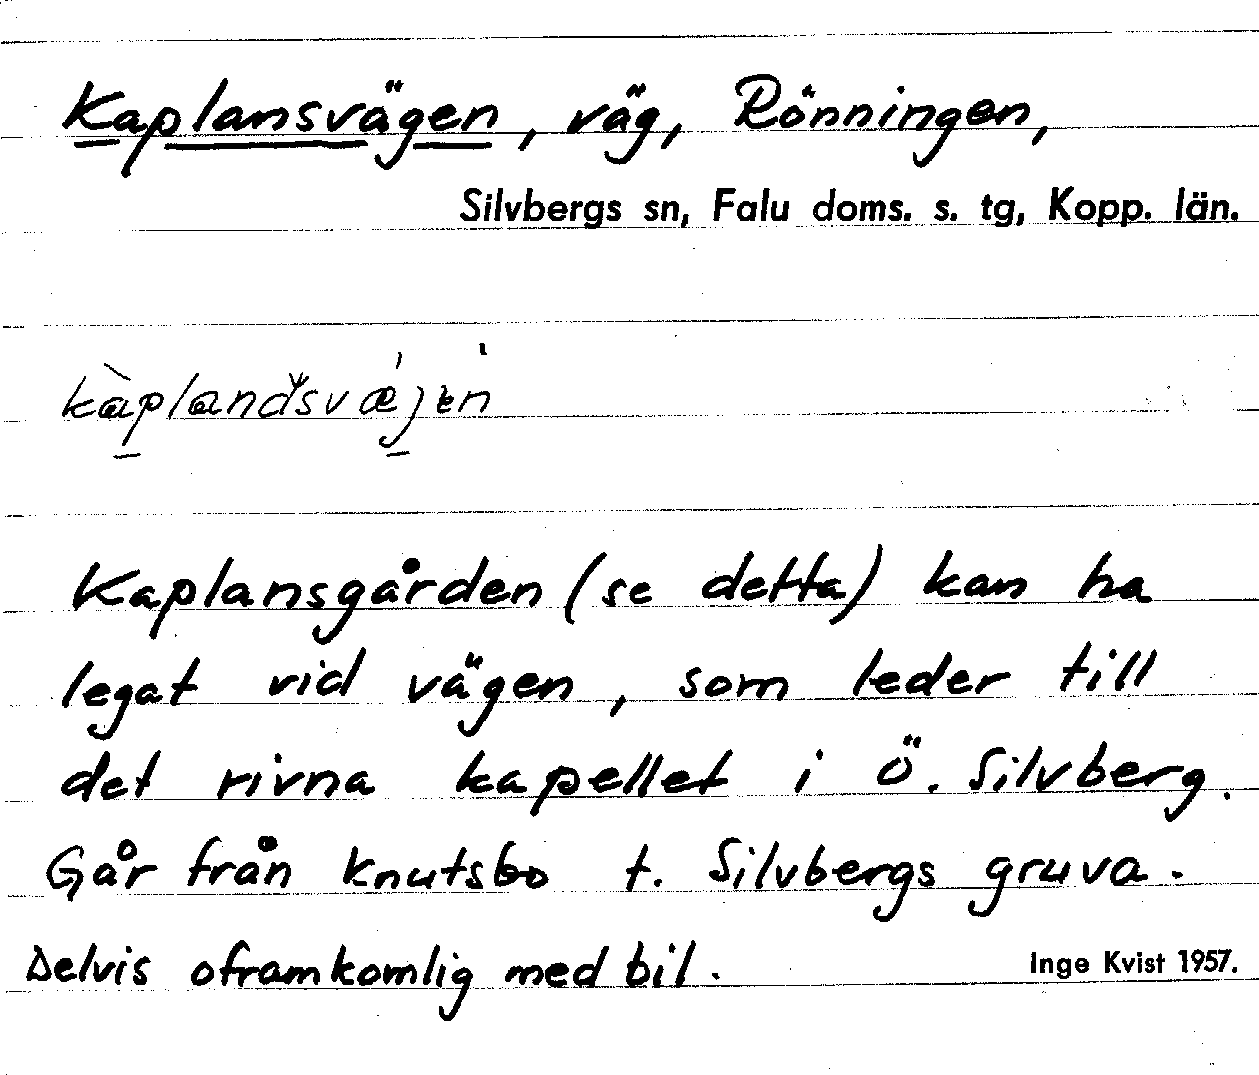 Kaplansvägen, väg, Rönningen,
Silvbergs sn, Falu doms. s. tg, Kopp. län.
Kaplansgården (se detta) kan ha
legat vid vägen, som leder till
det rivna kapellet i Ö. Silvberg.
Går från Knutsbo t. Silvbergs gruva.
Delvis oframkomlig med bil.
Inge Kvist 1957.